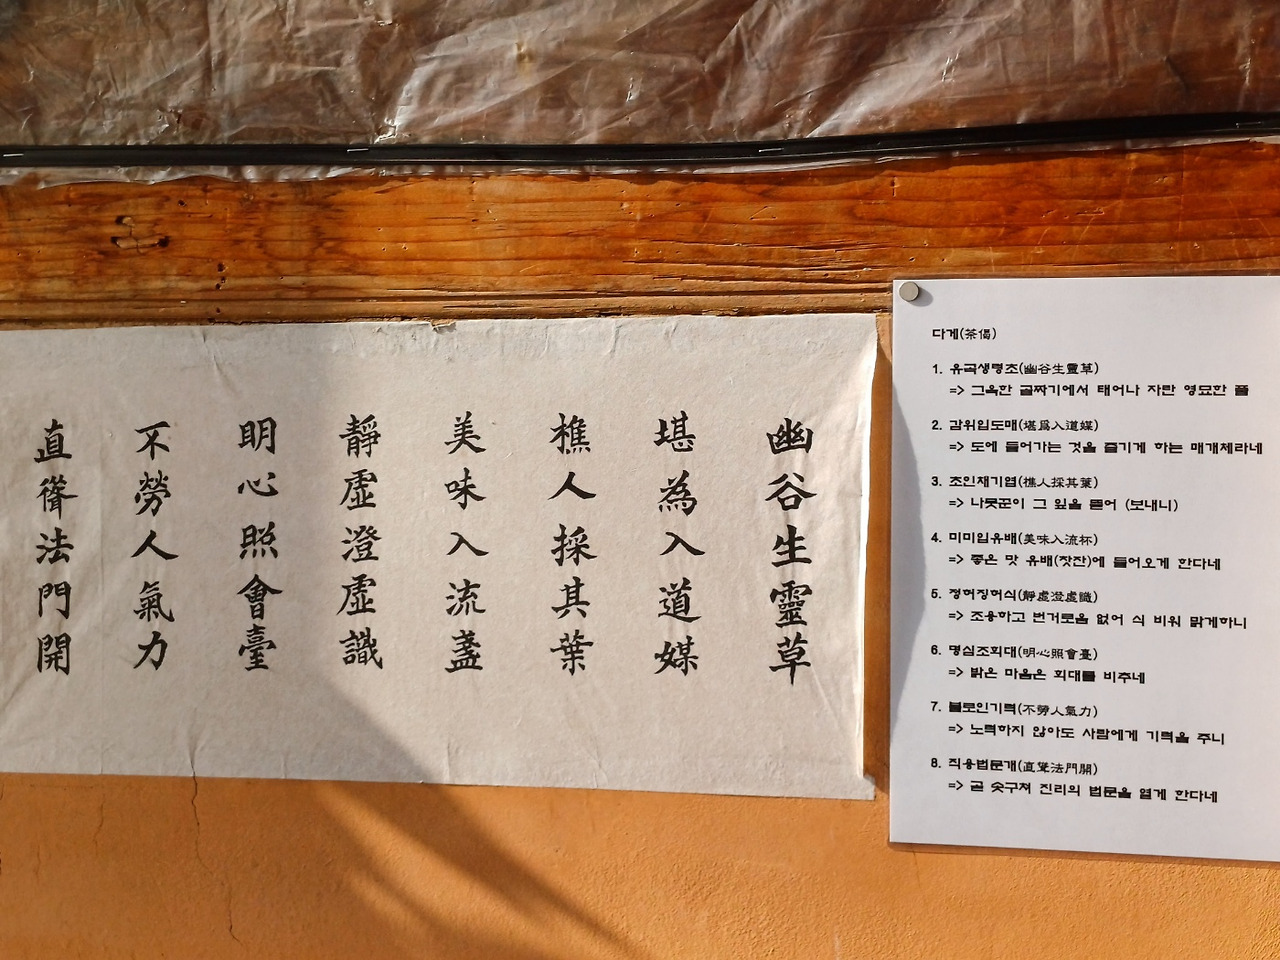 幽谷生靈草
堪為入道媒
樵人採其葉
美味入流盞
靜虛澄虛識
明心照會臺
不勞人氣力
直聳法門開
다게(茶偈)
1. 유곡생령초(幽谷生靈草)
=> 그윽한 골짜기에서 태어나 자란 영묘한 풀
2. 감위입도매(堪爲入道媒)
=> 도에 들어가는 것을 즐기게 하는 매개체라네
3. 초인채기엽(樵人採其葉)
=> 나뭇꾼이 그 잎을 뜯어 (보내니)
4. 미미입유배(美味入流杯)
=> 좋은 맛 유배(찻잔)에 들어오게 한다네
5. 정허징허식(靜虛澄虛識)
=> 조용하고 번거로움 없어 식 비워 맑게하니
6. 명심조회대(明心照會臺)
=> 밝은 마음은 회대를 비추네
7. 불로인기력(不勞人氣力)
=> 노력하지 않아도 사람에게 기력을 주니
8. 직용법문개(直聳法門開)
=> 곧 솟구쳐 진리의 법문을 열게 한다네